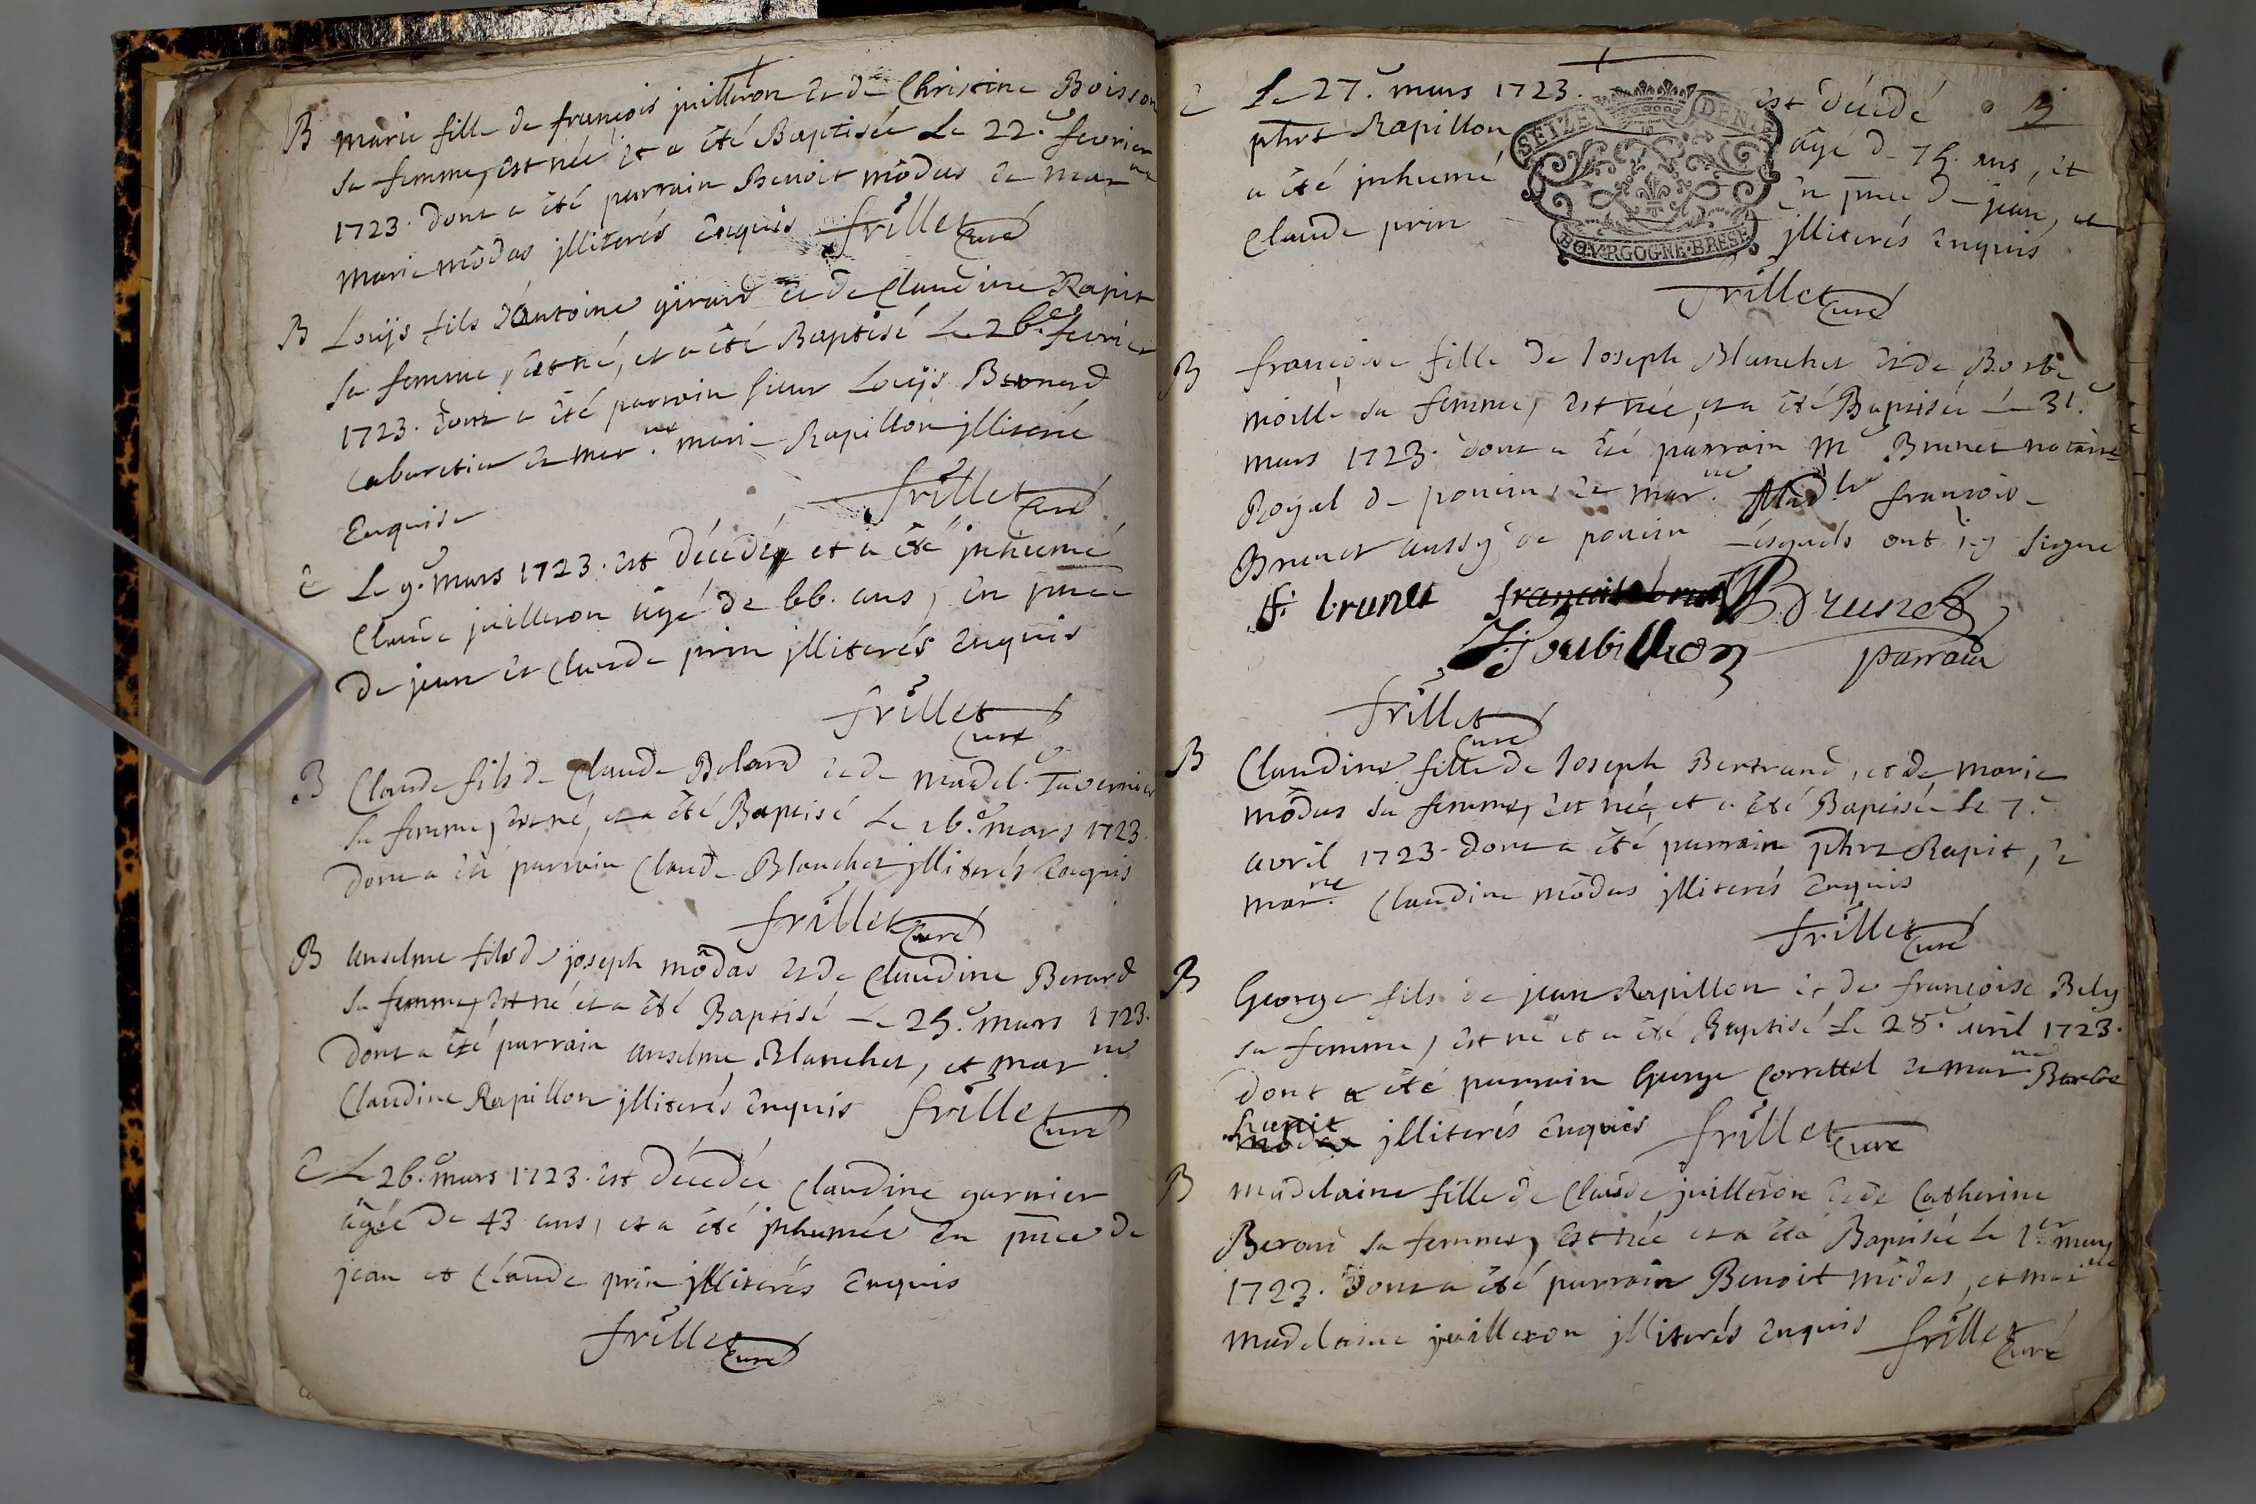 B marie fille de françois juilleron et de Christine Boisson
sa femme, est née et a été Baptisée Le 22.e fevrier
1723. dont a été parrain Benoit môdas et mar.ne
Marie môdas jlliterés enquis frillet Curé
B Loüjs fils d'antoine girard et de Claudine Rapit
sa femme, est né, et a été Baptisé Le 26.e fevrier
1723. dont a été parrain sieur Loüjs Bernard
Cabaretier et mar.ne marie Rapillon jlliterée
Enquise frillet Curé
E Le 9.e mars 1723. est décedé et a été jnhumé
Claude juilleron agé de 66. ans, en pnce
de jean et Claude prin jlliterés enquis
frillet Curé
B Claude fils de Claude Bolard et de madel. Tavernier
sa femme, est né, et a été Baptisé Le 16.e mars 1723.
dont a été parrain Claude Blanchet jlliterés Enquis
frillet Curé
B anselme fils de joseph môdas et de Claudine Berard
sa femme, est né et a été Baptisé Le 25.e mars 1723.
dont a été parrain anselme Blanchet, et mar.ne
Claudine Rapillon jlliterés enquis frillet Curé
E Le 26.e mars 1723. est décedée Claudine garnier
agée de 43 ans, et a été jnhumée en pnce de
jean et Claude prin jlliterés enquis
frillet Curé
E Le 27.e mars 1723. est décedé
phrt Rapillon âgé de 75. ans, et
a été jnhumé en pnce de jean, et
Claude prin jlliterés enquis
SEIZE DEN
BOVRGOGNE·BRESE
frillet Curé
B françoise fille de Joseph Blanchet et de Borbe
moille sa femme, est née, et a été Baptisée Le 31.e
mars 1723. dont a été parrain Me Brunet notaire
Royal de poncin, et mar.ne Mad.lle françoise
Brunet aussÿ de poncin Lesquels ont icy signe
f: brunet Brunet
Joubillion parrain
frillet Curé
B Claudine fille de Joseph Bertrand, et de marie
môdas sa femme, est née, et a été Baptisée Le 7.e
avril 1723. dont a été parrain phrt Rapit, et
mar.ne Claudine môdas jlliterés enquis
frillet Curé
B George fils de jean Rapillon et de françoise Bely
sa femme, est né et a été Baptisé Le 28.e avril 1723.
dont a été parrain George Correttel et mar.ne Barbe
môdas jlliterés enquis frillet Curé
B madelaine fille de Claude juilleron et de Catherine
Berard sa femme, est née et a été Baptisée Le 1.er may
1723. dont a été parrain Benoit môdas, et mar.ne
madelaine juilleron jlliterés enquis frillet Curé